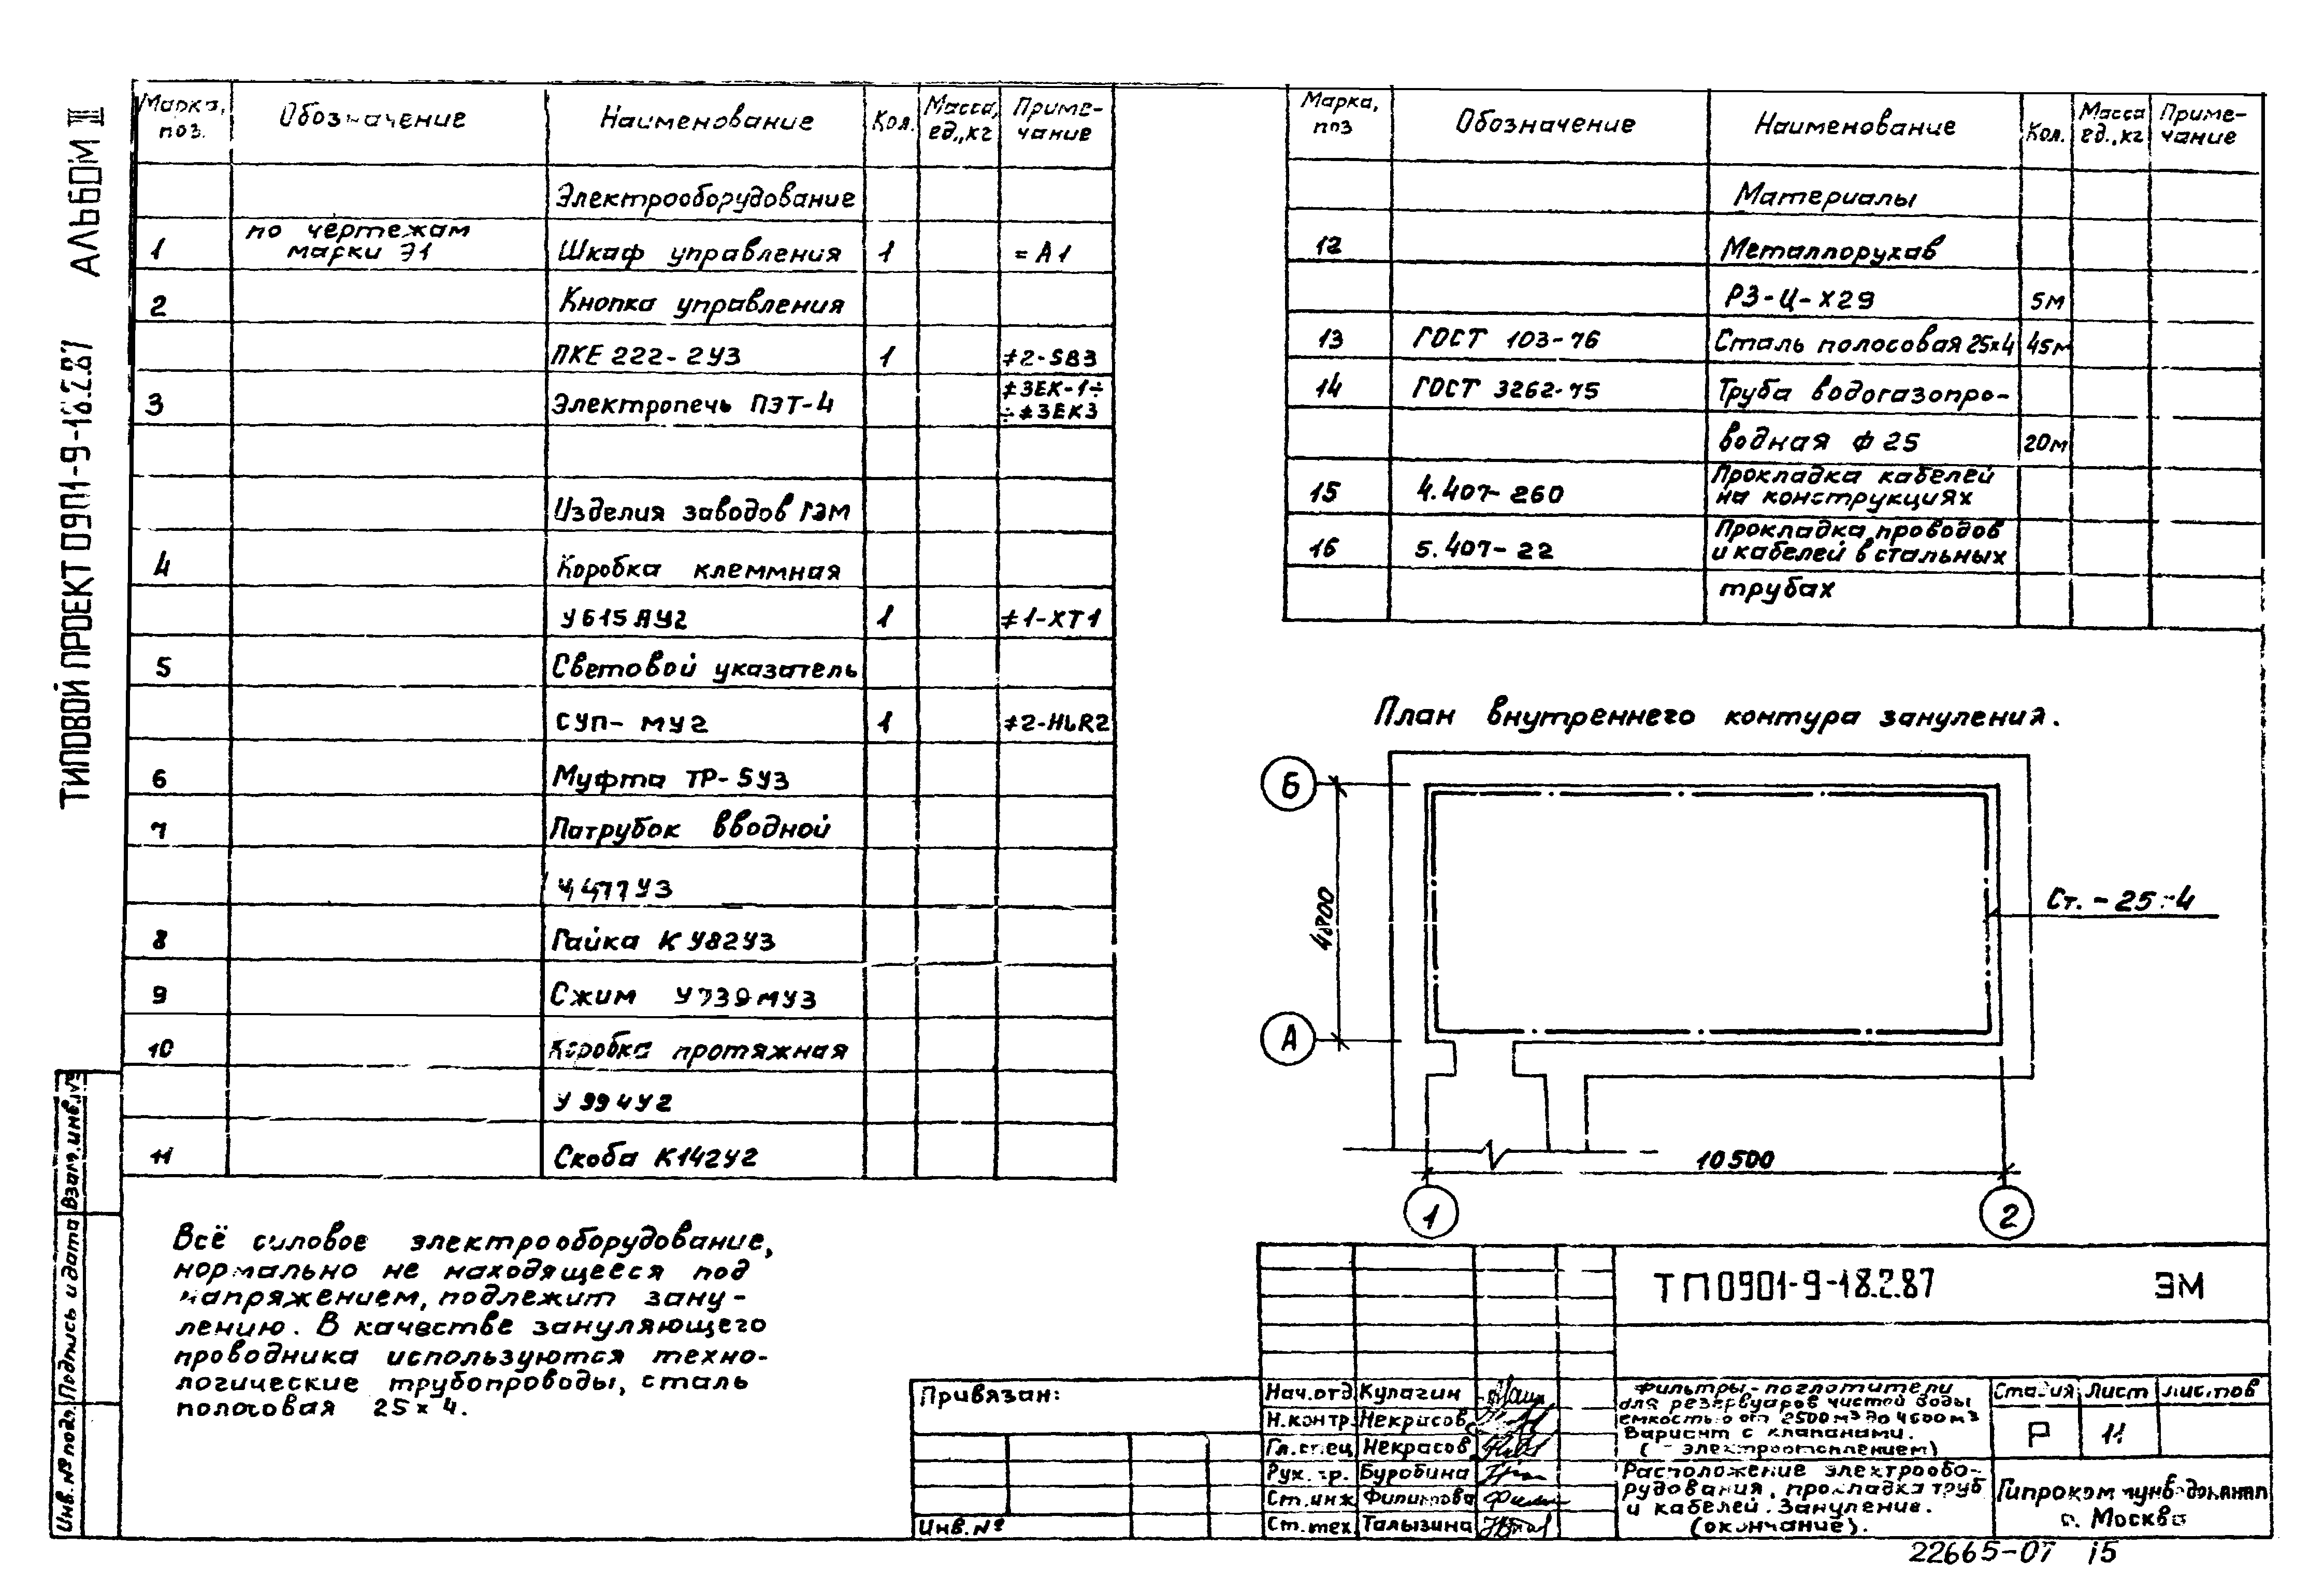 ТИПОВОЙ ПРОЕКТ 0901-9-18.2.87 АЛЬБОМ III
Марка, поз. Обозначение Наименование Кол. Масса, ед.,кг Приме-чание
Электрооборудование
1 по чертежам марки Э1 Шкаф управления 1 =А1
2 Кнопка управления
ПКЕ 222-2У3 1 ≠2-SB3
3 Электропечь ПЭТ-4 ≠3ЕК-1÷ ÷≠3ЕК3
Изделия заводов ГЭМ
4 Коробка клеммная
У615АУ2 1 ≠1-ХТ1
5 Световой указатель
СУП-МУ2 1 ≠2-HLR2
6 Муфта ТР-5У3
7 Патрубок вводной
У477У3
8 Гайка К У82У3
9 Сжим У739МУ3
10 Коробка протяжная
У994У2
11 Скоба К142У2
Марка, поз Обозначение Наименование Кол. Масса ед.,кг Приме-чание
Материалы
12 Металлорукав
РЗ-Ц-Х29 5м
13 ГОСТ 103-76 Сталь полосовая 25×4 45м
14 ГОСТ 3262-75 Труба водогазопро-
водная Ф 25 20м
15 4.407-260 Прокладка кабелей на конструкциях
16 5.407-22 Прокладка проводов и кабелей в стальных
трубах
План внутреннего контура зануления.
Б
А
4800
Ст. - 25×4
10500
1 2
Всё силовое электрооборудование,
нормально не находящееся под
напряжением, подлежит зану-
лению. В качестве зануляющего
проводника используются техно-
логические трубопроводы, сталь
полосовая 25×4.
Взам.инв.№
Подпись и дата
Инв.№ подл.
Привязан:
Инв.№
Нач.отд Кулагин
Н.контр. Некрасов
Гл.спец Некрасов
Рук.гр. Буробина
Ст.инж Филиппова
Ст.тех. Талызина
ТП 0901-9-18.2.87 ЭМ
Фильтры-поглотители
для резервуаров чистой воды
емкостью от 2500 м³ до 4600 м³
Вариант с клапанами.
( - электроотоплением)
Стадия Лист Листов
Р 11
Расположение электрообо-
рудования, прокладка труб
и кабелей. Зануление.
(окончание).
Гипрокоммунводоканал
г. Москва
22665-07 15